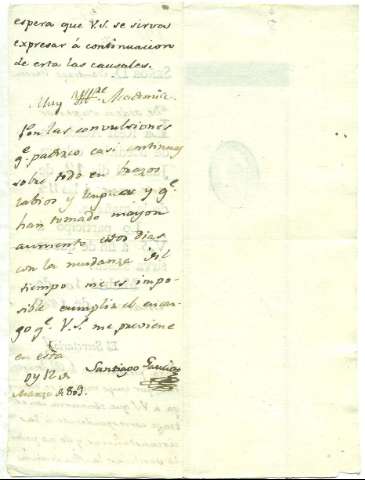 espera que V.S. se sirva
expresar á continuacion
de esta las causales.
Muy Academia.
Son las convulsiones
q.e padezco casi continuas
sobre todo en brazos
labios y lengua y q.e
han tomado mayor
aumento estos dias
con la mudanza del
tiempo me es impo-
sible cumplir el encar-
go q.e V.S. me previene
en esta
oy 12 de
Marzo de 803.
Santiago